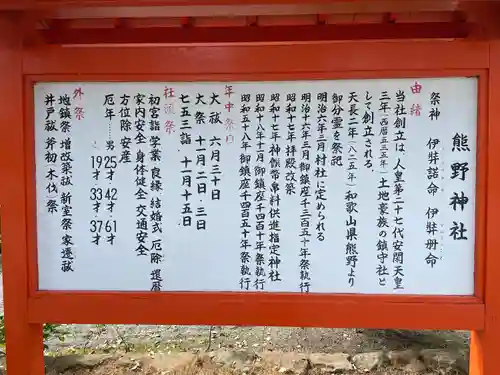 熊野神社
祭神 伊弉諾命 伊弉册命
由緒
当社創立は、人皇第二十七代安閑天皇
三年(西暦五三五年)土地豪族の鎮守社と
して創立される、
天長二年(八二五年)和歌山県熊野より
御分霊を祭祀
明治六年三月村社に定められる
明治十六年三月御鎮座千三百五十年祭執行
昭和十七年拝殿改築
昭和十七年神饌幣帛料供進指定神社
昭和十八年十一月御鎮座千四百十年祭執行
昭和五十八年御鎮座千四百五十年祭執行
年中祭日
大祓 六月三十日
大祭 十一月二日・三日
七五三詣 十一月十五日
社頭祭
初宮詣 学業 良縁 結婚式 厄除 還暦
家内安全 身体健全 交通安全
方位除 安産
厄年…男25才 42才 61才
19才 33才 37才
外祭
地鎮祭 増改築祓 新室祭 家邊祓
井戸祓 斧初 木伐祭